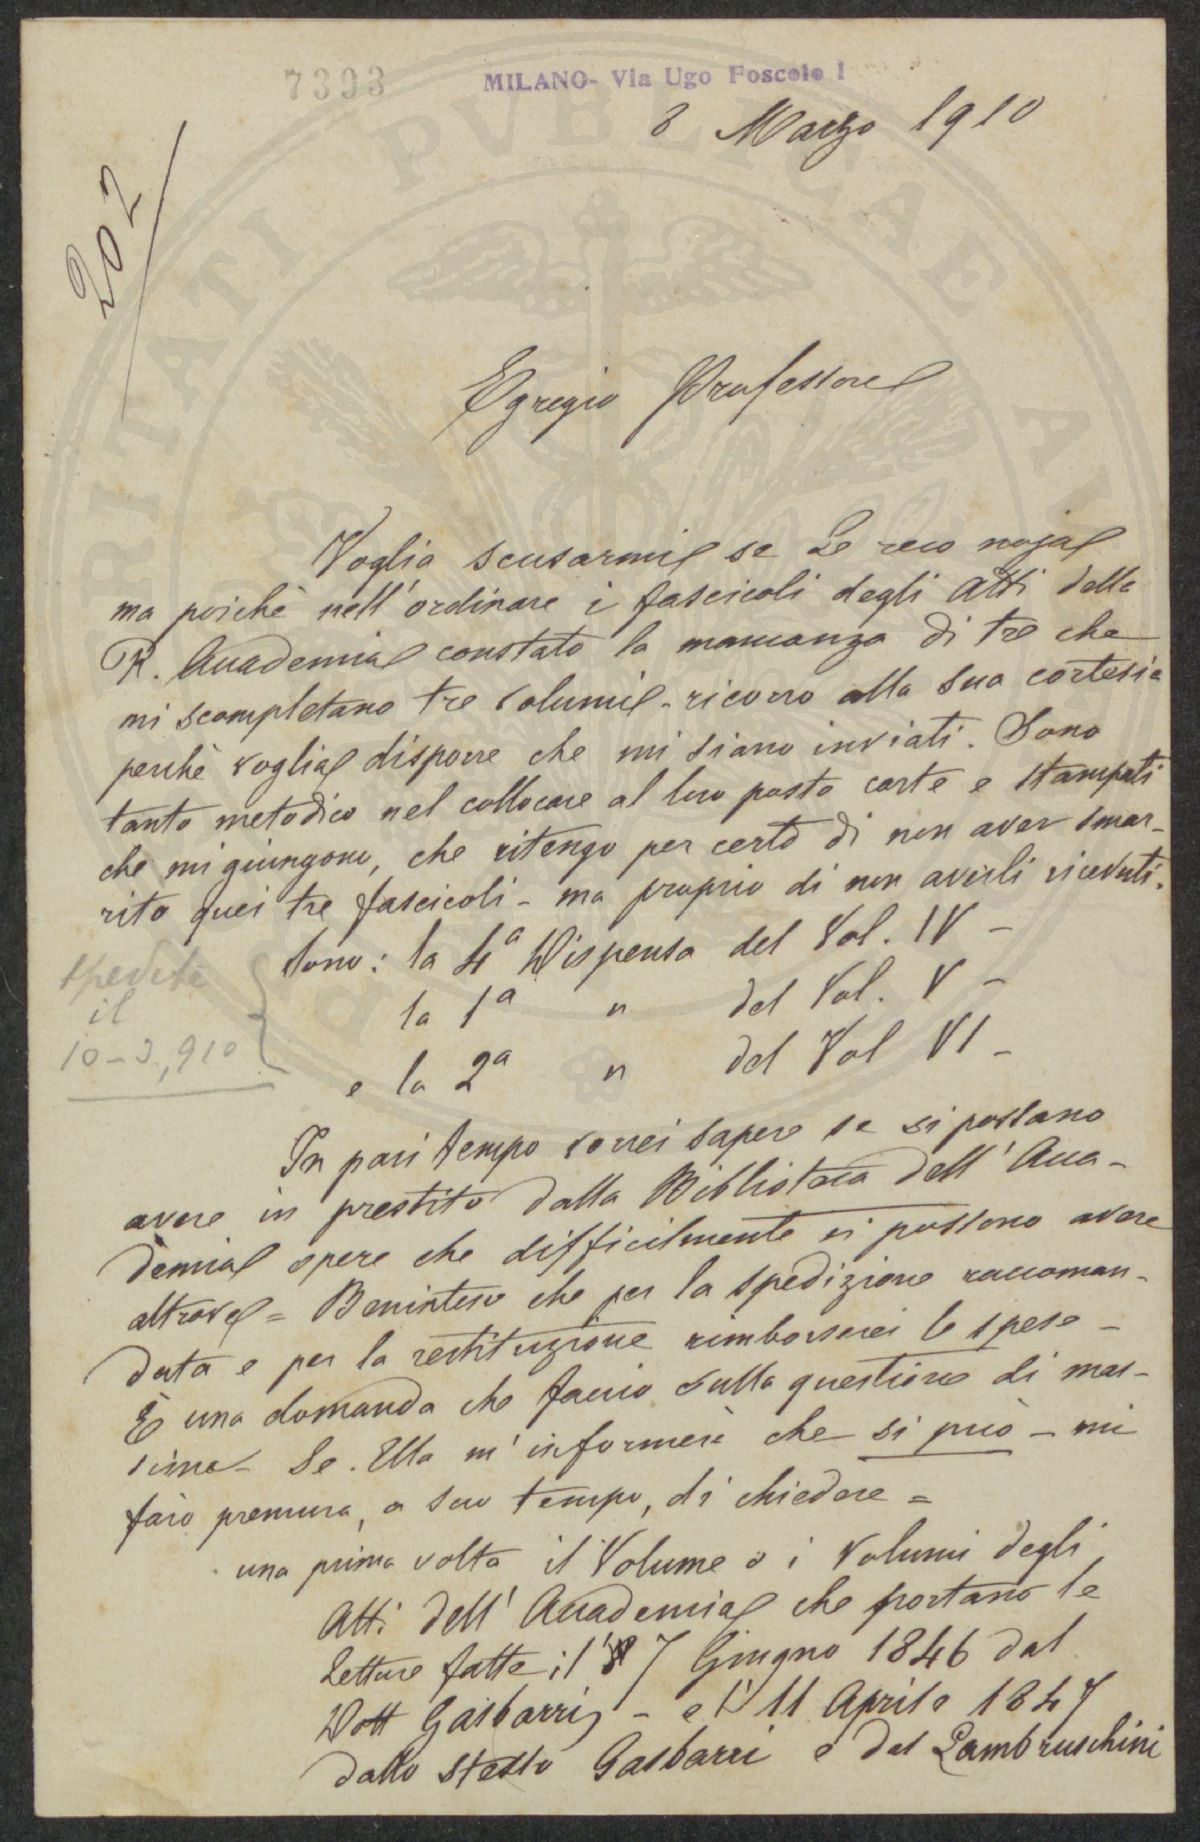 7393
MILANO- Via Ugo Foscolo 1
8 Marzo 1910
202
Egregio Professore
Voglia scusarmi se Le reco noja
ma poichè nell'ordinare i fascicoli degli Atti della
R. Accademia constato la mancanza di tre che
mi scompletano tre volumi - ricorro alla Sua cortesia
perchè voglia disporre che mi siano inviati. Sono
tanto metodico nel collocare al loro posto carte e stampati
che mi giungono, che ritengo per certo di non aver smar-
rito quei tre fascicoli - ma proprio di non averli ricevuti.
Sono: la 4ª Dispensa del Vol. IV -
la 1ª " del Vol. V -
e la 2ª " del Vol VI -
spedite
il
10-3.910
In pari tempo vorrei sapere se si possano
avere in prestito dalla Biblioteca dell'Acca-
demia opere che difficilmente si possono avere
altrove = Beninteso che per la spedizione raccoman-
data e per la restituzione rimborserei le spese -
È una domanda che faccio sulla questione di mas-
sima - Se Ella m'informerà che si può - mi
farò premura, a suo tempo, di chiedere =
una prima volta il Volume o i Volumi degli
Atti dell'Accademia che portano le
letture fatte il 7 Giugno 1846 dal
Dott Gasbarri - e l'11 Aprile 1847
dallo stesso Gasbarri e dal Lambruschini